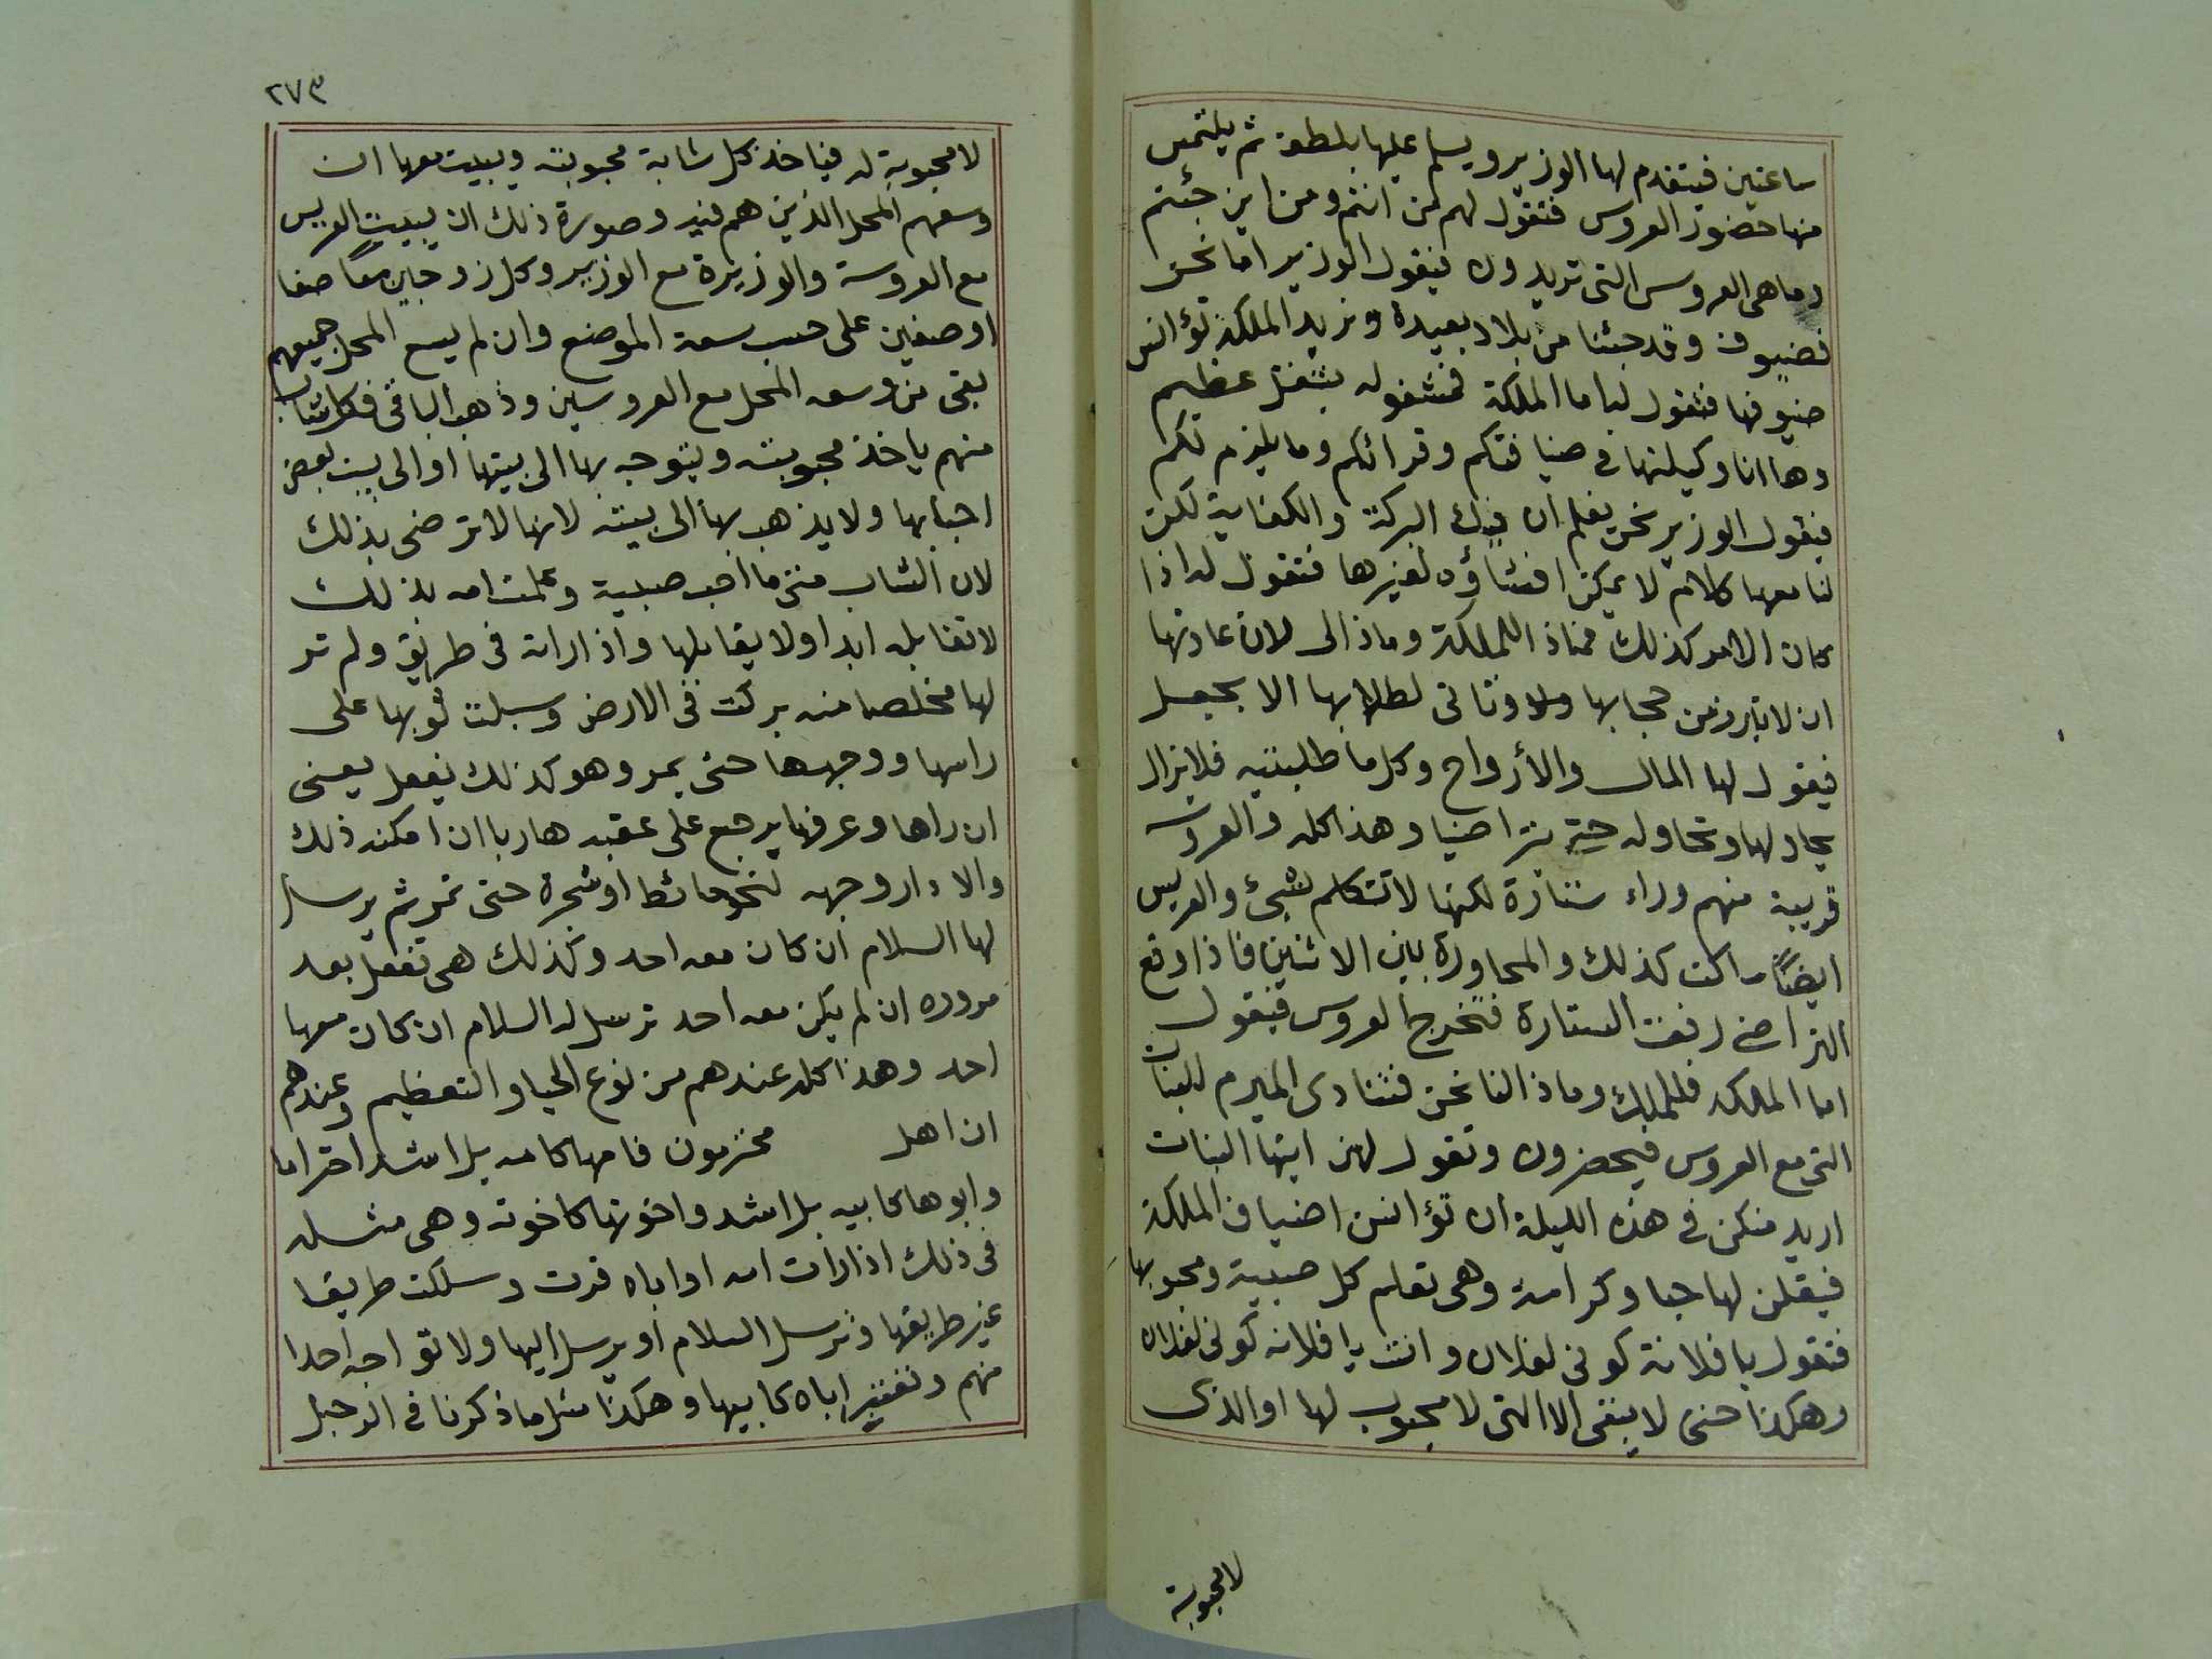 ساعتين فيتقدم لها الوزير ويسلم عليها بلطف ثم يلتمس
منها حضور العروس فتقول لهم من انتم ومن اين جئتم
وما هى العروس التى تريدون فيقول الوزير اما نحن
فضيوف وقد جئنا من بلاد بعيدة ونريد الملكة تؤانس
ضيوفها فتقول لها ما الملكة فمشغوله بشغل عظيم
وها انا وكيلتها فى ضيافتكم وقرائكم وما يلزم لكم
فيقول الوزير نحن نعلم ان فيك البركة والكفاية لكن
لنا معها كلام لا يمكن افشاؤه لغيرها فتقول له اذا
كان الامر كذلك فماذا للملكة وماذا لى لان عادتها
ان لا تبرز من حجابها ولا وتاتى لطلابها الا بجعل
فيقول لها المال والأرواح وكل ما طلبتيه فلا يزال
يحاولها وتحاوله حتى تراضيا وهذا كله والعروسة
قريبة منهم وراء ستارة لكنها لا تتكلم بشيئ والعريس
ايضًا ساكت كذلك والمحاورة بين الاثنين فاذا وقع
التراضى رفعت الستارة فتخرج العروس فيقول
اما الملكه فللملك وماذا لنا نحن فتنادى الميرم للبنات
التى مع العروس فيحضرون وتقول لهن ايتها البنات
اريد منكن فى هذه الليلة ان تؤانسن اضياف الملكة
فيقلن لها حبا وكرامة وهى تعلم كل صبية ومحبوبها
فتقول يا فلانة كونى لفلان وانت يا فلانه كونى لفلان
وهكذا حتى لا يبقى الا التى لا محبوب لها او الذى
لا محبوبة
٢٧٣
لا محبوبة له فياخذ كل شابة محبوبته ويبيت معها ان
وسعهم المحل الذين هم فيه وصورة ذلك ان يبيت العريس
مع العروسة والوزيرة مع الوزير وكل زوجين معًا صفا
او صفين على حسب سعة الموضع وان لم يسع المحل جميعهم
بقى من وسعه المحل مع العروسين وذهب الباقى فكل شاب
منهم ياخذ محبوبته ويتوجه بها الى بيتها او الى بيت بعض
احبابها ولا يذهب بها الى بيته لانها لا ترضى بذلك
لان الشاب متى ما احب صبية وعلمت امه بذلك
لا تقابله ابدا ولا يقابلها واذا راته فى طريق ولم تر
لها مخلصا منه بركت فى الارض وسبلت ثوبها على
راسها ووجهها حتى يمر وهو كذلك يفعل يعنى
ان راها وعرفها يرجع على عقبه هاربا ان امكنه ذلك
والا دار وجهه لنحو حائط او شجرة حتى تمر ثم يرسل
لها السلام ان كان معه احد وكذلك هى تفعل بعد
مروره ان لم يكن معه احد ترسل له السلام ان كان معها
احد وهذا كله عندهم من نوع الحيا والتعظيم وعندهم
ان اهل محترمون فامها كامه بل اشد احتراما
وابوها كابيه بل اشد واخوتها كاخوته وهى مثله
فى ذلك اذا رات امه او اباه فرت وسلكت طريقا
غير طريقها وترسل السلام او يرسل اليها ولا تواجه احدا
منهم وتعتبر اباه كابيها وهكذا مثل ما ذكرنا فى الرجل